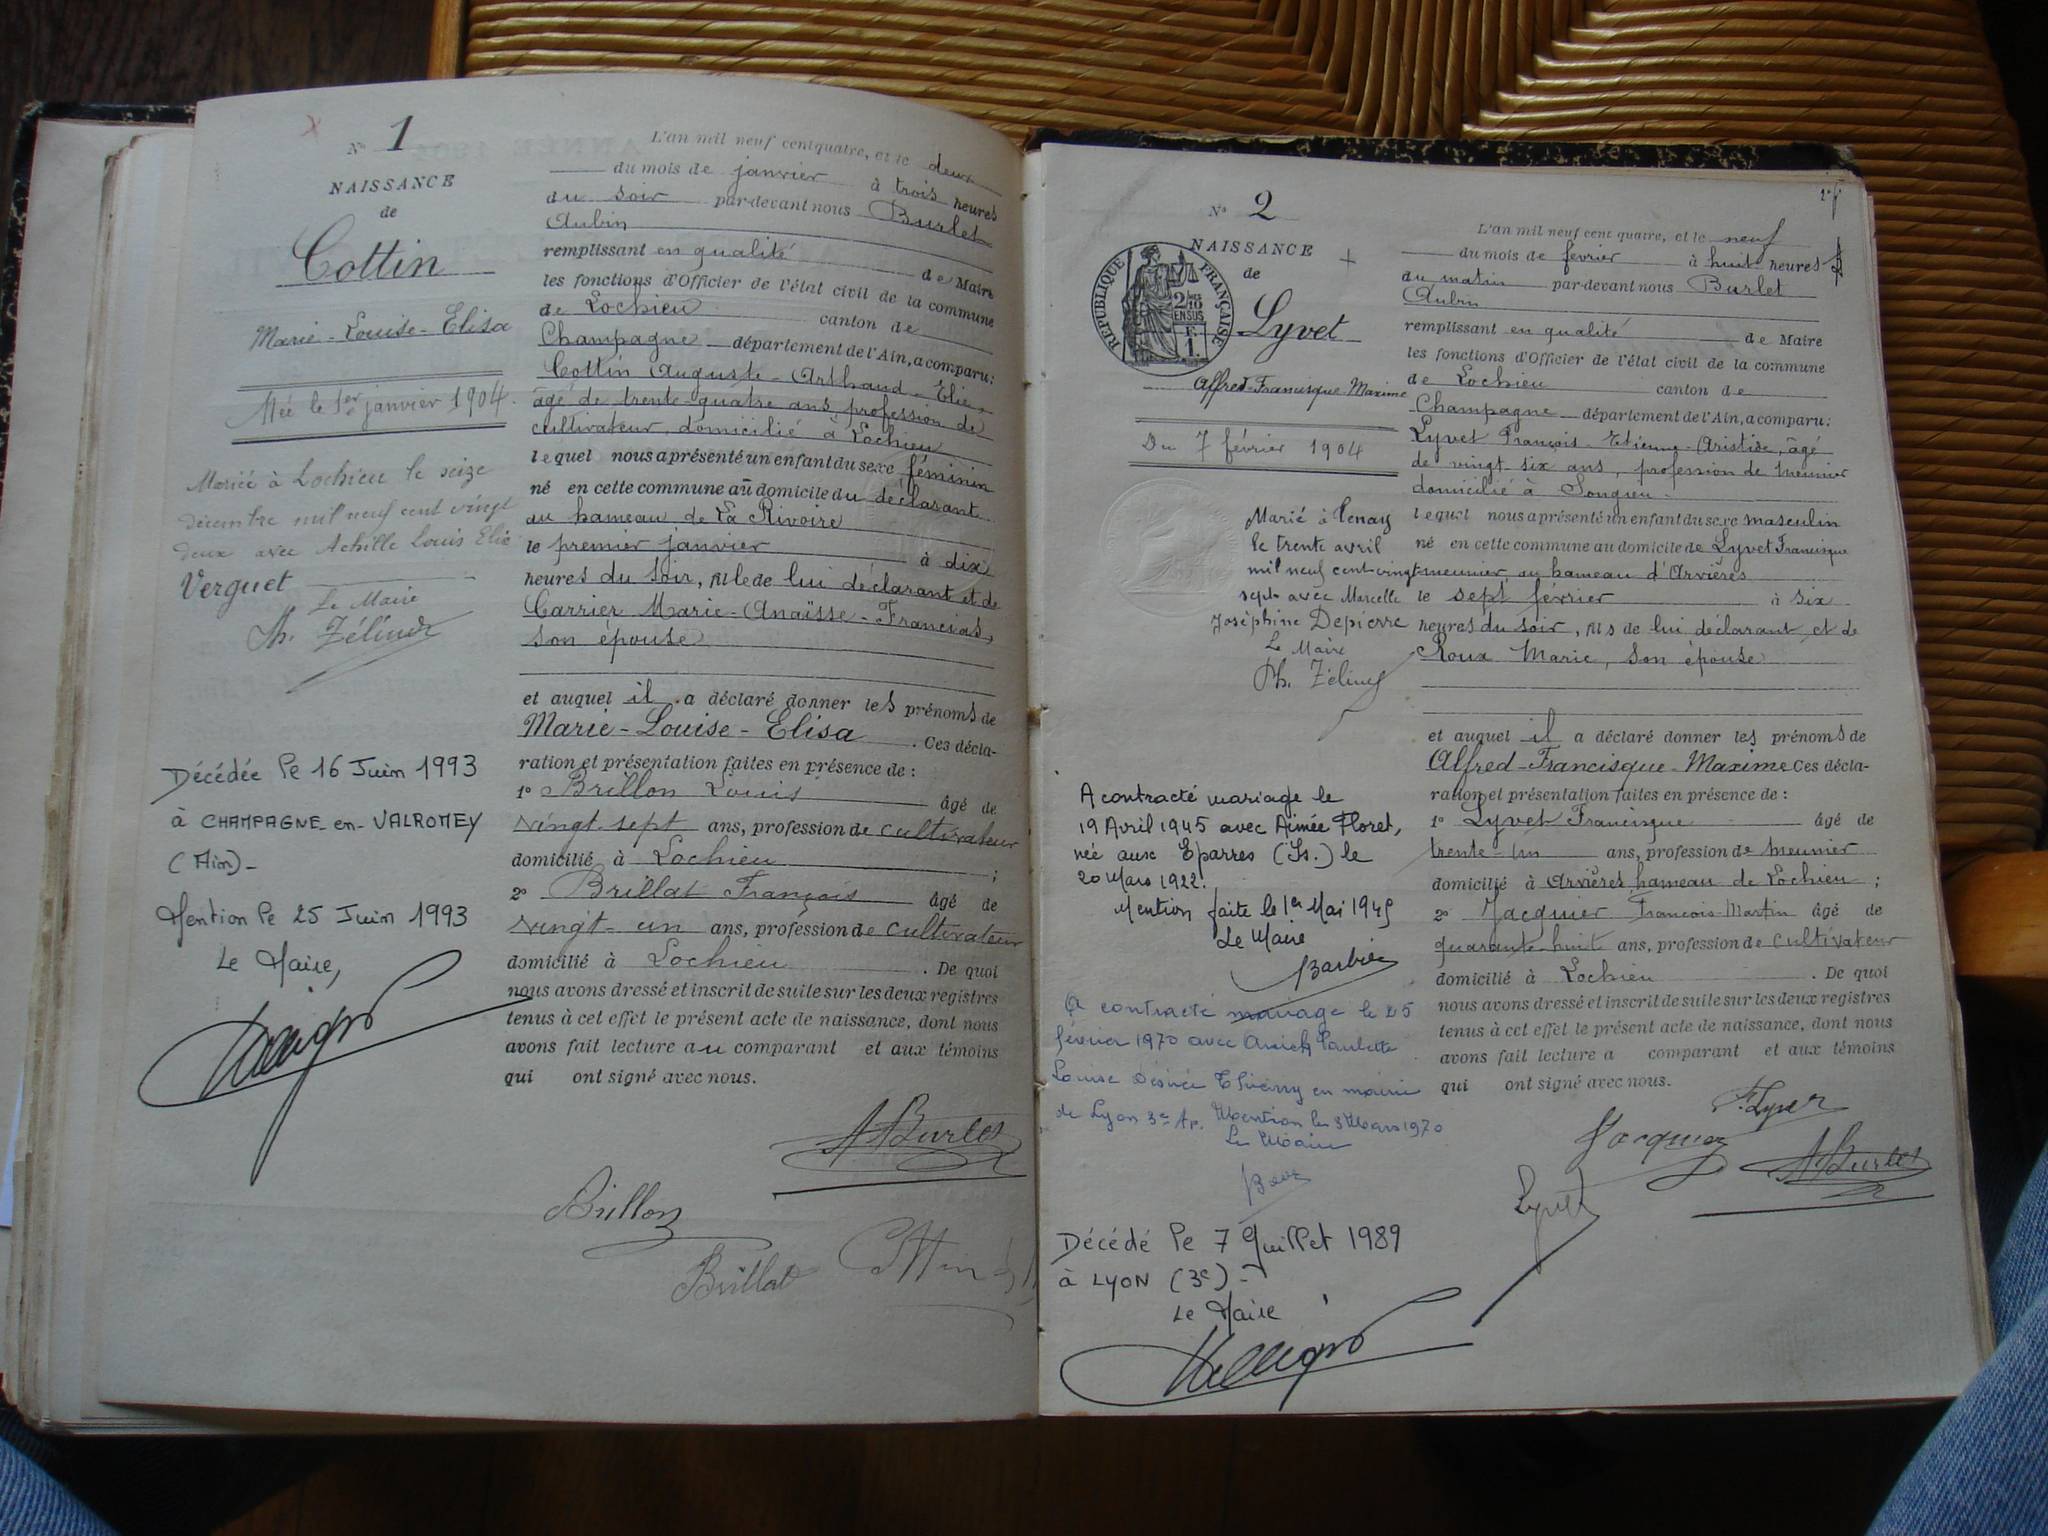 N° 1
NAISSANCE
de
Cottin
Marie-Louise-Elisa
Née le 1er janvier 1904.
Mariée à Lochieu le seize
décembre mil neuf cent vingt
deux avec Achille Louis Elie
Verguet
Le Maire
Décédée le 16 Juin 1993
à CHAMPAGNE-en-VALROMEY
(Ain)-
Mention le 25 Juin 1993
Le Maire,
L'an mil neuf cent quatre, et le deux
du mois de janvier à trois heures
du soir par-devant nous Burlet
Aubin
remplissant en qualité de Maire
les fonctions d'Officier de l'état civil de la commune
de Lochieu canton de
Champagne département de l'Ain, a comparu:
Cottin Auguste-Arthaud-Elie,
âgé de trente-quatre ans, profession de
cultivateur, domicilié à Lochieu
lequel nous a présenté un enfant du sexe féminin
né en cette commune au domicile du déclarant
au hameau de La Rivoire
le premier janvier à dix
heures du soir, fille de lui déclarant et de
Carrier Marie-Anaïsse-
son épouse
et auquel il a déclaré donner les prénoms de
Marie-Louise-Elisa. Ces décla-
ration et présentation faites en présence de :
1° Brillon Louis âgé de
vingt-sept ans, profession de cultivateur
domicilié à Lochieu ;
2° Brillat François âgé de
vingt-un ans, profession de cultivateur
domicilié à Lochieu. De quoi
nous avons dressé et inscrit de suite sur les deux registres
tenus à cet effet le présent acte de naissance, dont nous
avons fait lecture au comparant et aux témoins
qui ont signé avec nous.
ABurlet
Brillon
Brillat
Cottin
N° 2
NAISSANCE
de
REPUBLIQUE FRANÇAISE
2/10 EN SUS
F. 1.
Lyvet
Alfred-Francisque Maxime
Du 7 février 1904
Marié à Tenay
le trente avril
mil neuf cent vingt
sept avec Marcelle
Joséphine Depierre
Le Maire
A contracté mariage le
19 Avril 1945 avec Aimée Floret,
née aux Eparres (Is.) le
20 Mars 1922.
Mention faite le 1er Mai 1945
Le Maire
Barbier
A contracté mariage le 25
février 1970 avec Paulette
Louise Désirée Thierry en mairie
de Lyon 3e Ar. Mention le 3 Mars 1970
Le Maire
Décédé le 7 Juillet 1989
à LYON (3e)-
Le Maire
L'an mil neuf cent quatre, et le neuf
du mois de février à huit heures
du matin par-devant nous Burlet
Aubin
remplissant en qualité de Maire
les fonctions d'Officier de l'état civil de la commune
de Lochieu canton de
Champagne département de l'Ain, a comparu:
Lyvet François-Etienne-Aristide, âgé
de vingt-six ans, profession de meunier
domicilié à Songieu
lequel nous a présenté un enfant du sexe masculin
né en cette commune au domicile de Lyvet Francisque
meunier au hameau d'Arvières
le sept février à six
heures du soir, fils de lui déclarant, et de
Roux Marie, son épouse
et auquel il a déclaré donner les prénoms de
Alfred-Francisque-Maxime Ces décla-
ration et présentation faites en présence de :
1° Lyvet Francisque âgé de
trente-un ans, profession de meunier
domicilié à Arvières hameau de Lochieu ;
2° Jacquier François-Martin âgé de
quarante-huit ans, profession de cultivateur
domicilié à Lochieu. De quoi
nous avons dressé et inscrit de suite sur les deux registres
tenus à cet effet le présent acte de naissance, dont nous
avons fait lecture a comparant et aux témoins
qui ont signé avec nous.
F. Lyvet
Jacquier
ABurlet
Lyvet